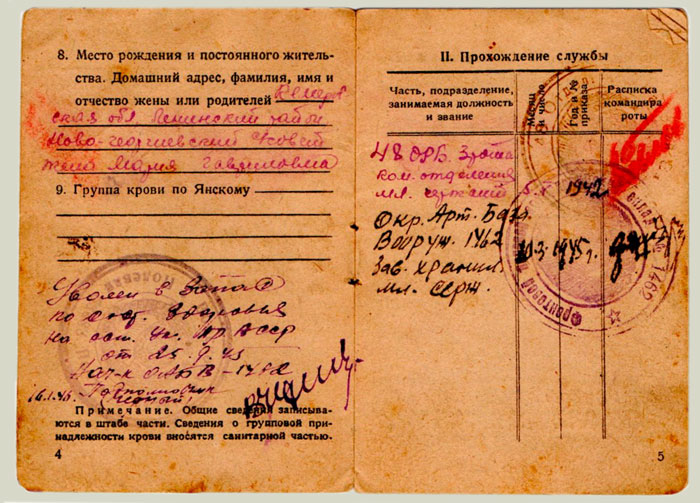 8. Место рождения и постоянного житель-
ства. Домашний адрес, фамилия, имя и
отчество жены или родителей
ская обл Ленинский район
Ново-георгиевский
жена Мария Гавриловна
9. Группа крови по Янскому
Уволен в запас
по сост. здоровья
на осн. Ук. СССР
от 25. 9. 45
Нач-к ОАБ В-1462
16.1.46. Подполковник
Примечание. Общие сведения записыва-
ются в штабе части. Сведения о групповой при-
надлежности крови вносятся санитарной частью.
4
II. Прохождение службы
Часть, подразделение,
занимаемая должность
и звание
Месяц
и число
Год и №
приказа
Расписка
командира
роты
48 ОРБ. 3 рота
ком. отделения
мл. сержант 1942
Окр. Арт. База
Вооруж. 1462
Зав. хранил. 10.3. 1945г.
мл. серж.
1462
5